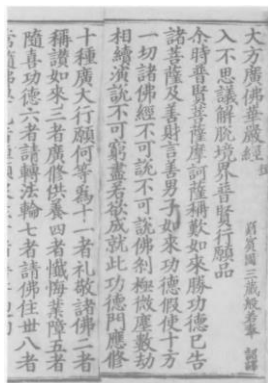 大方廣佛華嚴經
罽賓國三藏般若奉 詔譯
入不思議解脫境界普賢行願品
尒時普賢菩薩摩訶薩稱歎如來勝功德已告
諸菩薩及善財言善男子如來功德假使十方
一切諸佛經不可說不可說佛剎極微塵數劫
相續演說不可窮盡若欲成就此功德門應修
十種廣大行願何等為十一者禮敬諸佛二者
稱讚如來三者廣修供養四者懺悔業障五者
隨喜功德六者請轉法輪七者請佛住世八者